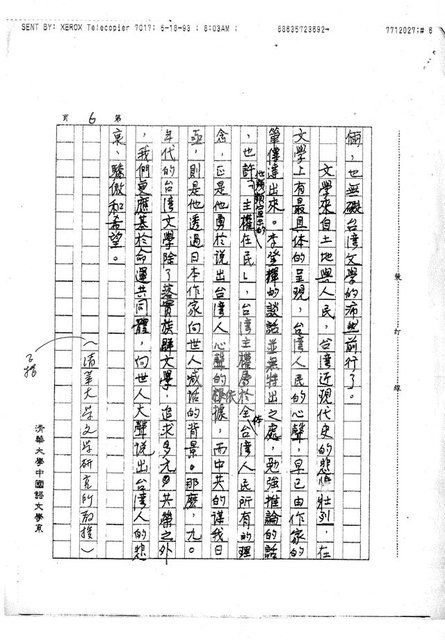 SENT BY: XEROX Telecopier 7017; 5-18-93 ; 8:03AM ; 88635723692→ 7712027;# 6
第 6 頁
裝 訂 線
個,也無礙台湾文學的痛與前行了。
文學來自土地與人民,台湾近現代史的悲情壯烈,在
文學上有最具体的呈現,台湾人民的心聲,早已由作家的
筆傳達出來。李登輝的談話並無特出之處,勉強推論的話
,也許他頻頻宣示的「主權在民」,台湾主權屬於全体台湾人民所有的理
念,正是他勇於說出台湾人心聲的依據,而中共的謀我日
亟,則是他透過日本作家向世人喊話的背景。那麼,九〇
年代的台湾文學除了落實族群文學,追求多元共榮之外
,我們更應基於命運共同體,向世人大聲說出台湾人的悲
哀、驕傲和希望。
(清華大学文学研究所教授)
清華大學中國語文學系